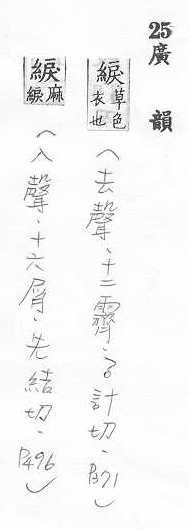 25 廣韻
綟 草色衣也
(去聲、十二霽、計切、P371)
綟 麻綟
(入聲、十六屑、先結切、P496)